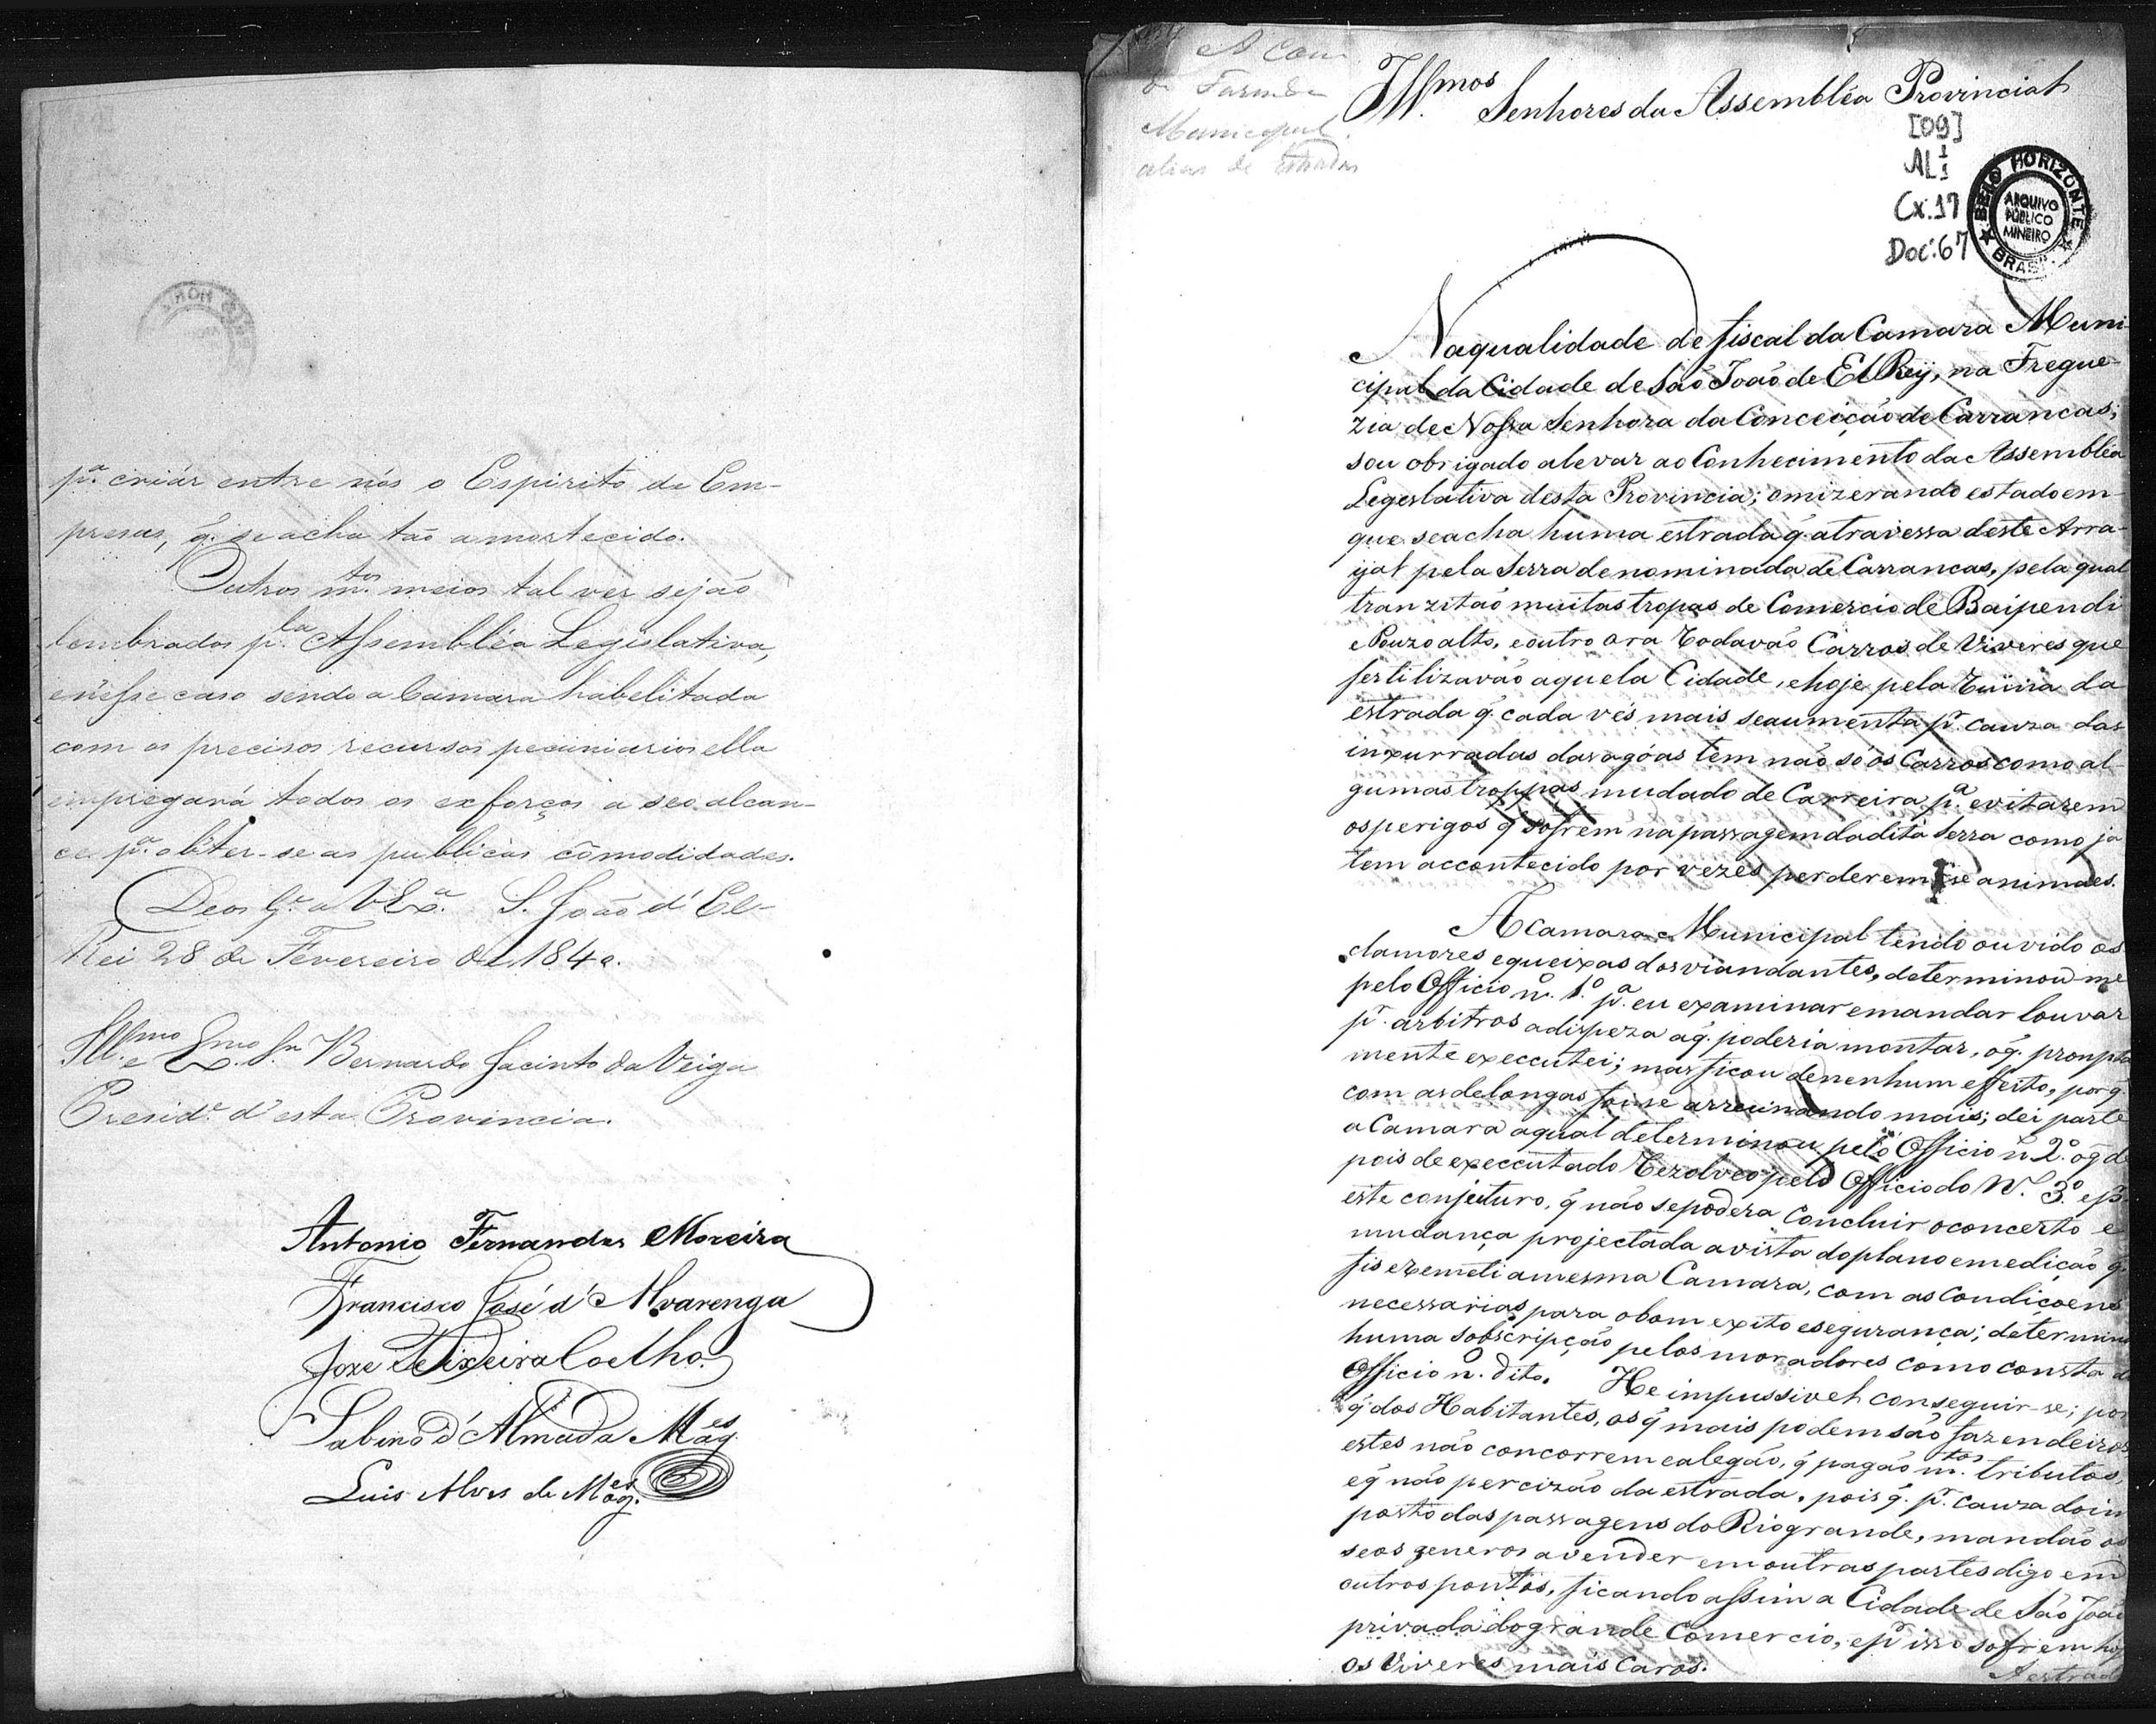 pª. criár entre nós o Espirito de Em-
presas, q̃. se acha tão amortecido.
Outros m.tos meios tal vez sejão
lembrados p.la Assembléa Legislativa,
e n'esse caso sendo a Camara habelitada
com os precisos recursos pecuniarios ella
empregará todos os exforços a seo alcan-
ce pª. obter-se as publicas cõmodidades.
Deos G.e a V Exª. S. João d'El-
Rei 28 de Fevereiro de 1840.
Ill.mo e Ex.mo Sn.r Bernardo Jacinto da Veiga
Presid.e d'esta Provincia.
Antonio Fernandes Moreira
Francisco José d'Alvarenga
Joze Teixeira Coelho
Sabino d'Almeida Mag.es
Luis Alves de Mag.es
A Com.
de Fazenda
Municipal.
alias de Estradas
Ill.mos Senhores da Assembléa Provincial
[09]
AL 1/1
Cx. 17
Doc. 67
BELO HORIZONTE
ARQUIVO
PÚBLICO
MINEIRO
BRASIL
Na qualidade de fiscal da Camara Muni-
cipal da Cidade de São João de El Rey, na Fregue-
zia de Nossa Senhora da Conceição de Carrancas;
sou obrigado alevar ao Conhecimento da Assembléa
Legeslativa desta Provincia; omizerando estado em
que seacha huma estrada q̃. atravessa deste Arra-
yal pela Serra denominada de Carrancas, pela qual
tranzitão muitas tropas de Comercio de Baipendi
e Pouzo alto, e outro ora Rodavão Carros de Viveres que
fertilizavão aquela Cidade, e hoje pela Ruina da
estrada q̃. cada vés mais seaumenta p.r cauza das
inxurradas das agóas tem não só os Carros como al-
gumas troppas mudado de Carreira pª. evitarem
os perigos q̃ sofrem na passagem da dita Serra como ja
tem accontecido por vezes perderem se animaes.
A Camara Municipal tendo ouvido os
clamores e queixas dos viandantes, determinou me
pelo Officio nº. 1º. pª. eu examinar e mandar louvar
p.r arbitros a dispeza a q̃. poderia montar, o q̃. prompta
mente execcutei; mas ficou de nenhum effeito, por q̃
com as delongas foi-se arreuinando mais; dei parte
a Camara a qual determinou pelo Officio nº 2º. o q̃ de
pois de execcutado Rezolveo pelo Officio do Nº. 3º. e p.r
este conjeituro, q̃ não se podera Concluir o concerto e
mudança projectada a vista do plano e medição q̃.
fis e Remeti a mesma Camara, com as Condiçoens
necessarias para o bom exito e segurança; determina
huma sobscripção pelos moradores como consta do
Officio nº. dito. He impussivel conseguir-se; por
q̃ dos Habitantes, os q̃ mais podem são fazendeiros
estes não concorrem e alegão, q̃ pagão m.tos tributos,
e q̃ não percizão da estrada, pois q̃. p.r cauza do im
posto das passagens do Riogrande, mandão os
seos generos a vender em outras partes digo em
outros pontos, ficando assim a Cidade de São João
privada do grande Comercio, e p.r isso sofrem hoj
os Viveres mais Caros.
A estrada